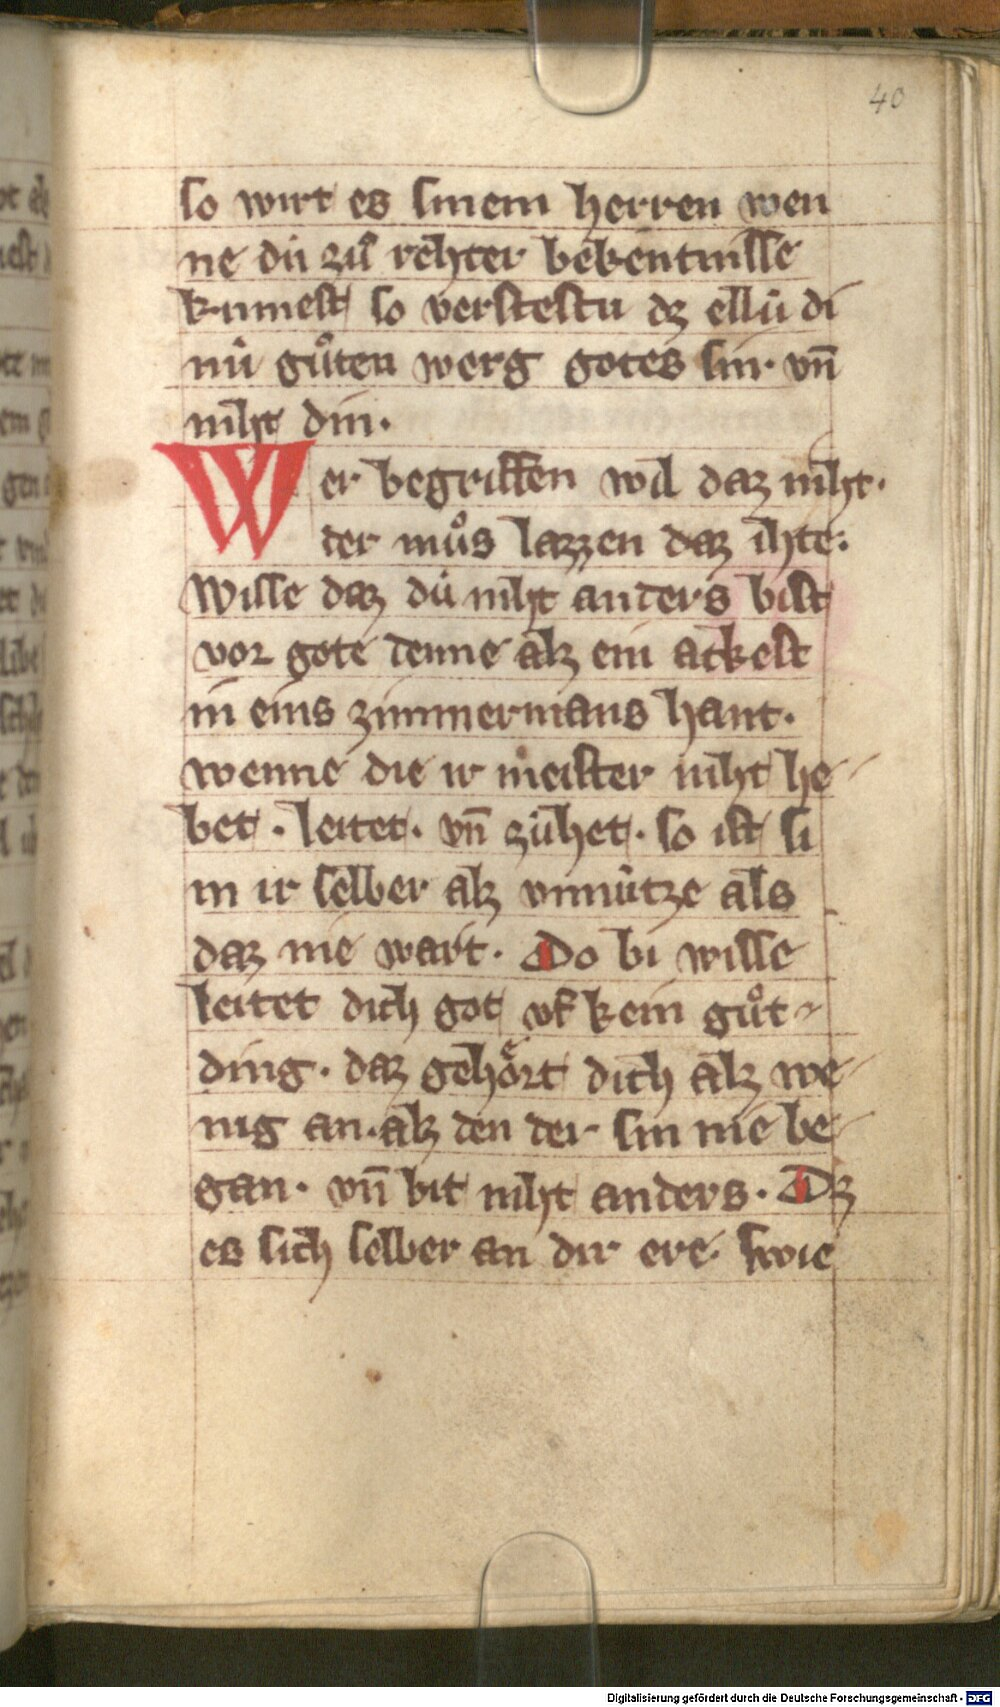 40
so wirt es sinem herren wen
ne dů zů rehter bekentnisse
kumest so verstestu dz ellů di
nů gůten werg gotes sin. vn̄
niht din.
Wer begriffen wil daz niht.
der můs lazzen daz ihte.
Wisse daz dů niht anders bist
vor gote denne alz ein ackest
in eins zimmermans hant.
wenne die ir meister niht he
bet. leitet. vn̄ zůhet. so ist si
in ir selber alz vnnůtze als
daz nie wart. Do bi wisse
leitet dich got vf kein gůt
ding. daz gehoͤrt dich alz we
nig an. alz den der sin nie be
gan. vn̄ bit niht anders. Dz
es sich selber an dir ere. swie
Digitalisierung gefördert durch die Deutsche Forschungsgemeinschaft - DFG